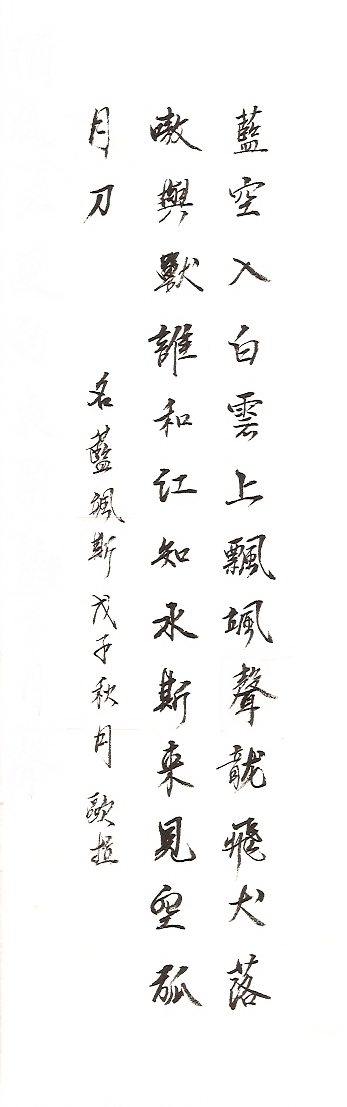 藍空入白雲上飄颯聲龍飛犬落
嗷與獸誰和知斯來見孤
月刀
名藍颯斯戊子秋月歐